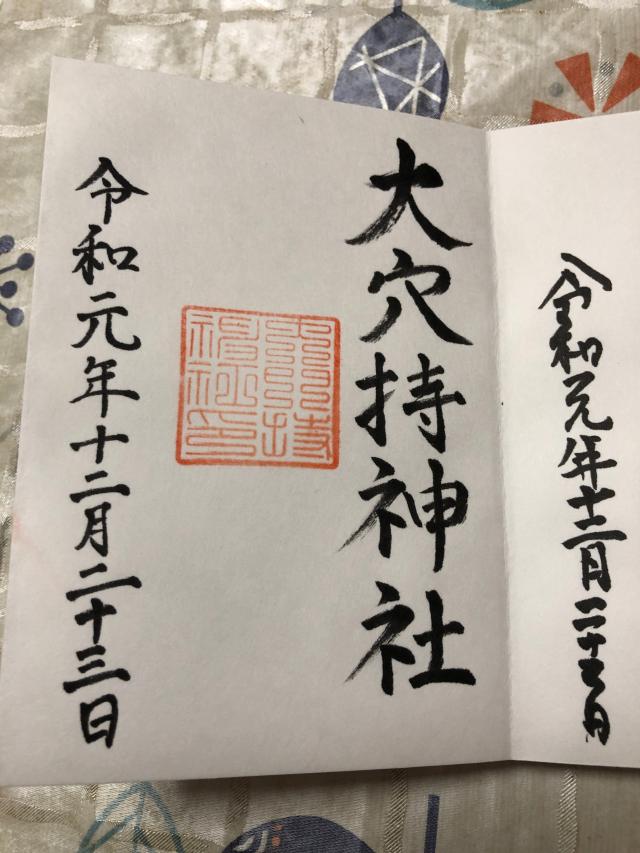 令和元年十二月二十三日
大穴持神社
令和元年十二月二十三日